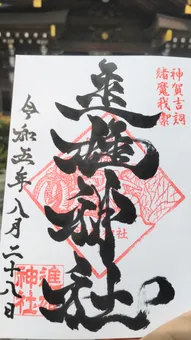 神賀吉詞
進雄神社
令和五年八月二十八日
進雄
神社